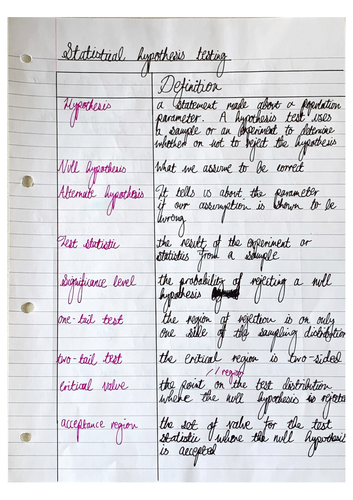 Statistical hypothesis testing
Definition
Hypothesis
a statement made about a population
parameter. A hypothesis test uses
a sample or an experiment to determine
whether or not to reject the hypothesis
Null hypothesis
what we assume to be correct
Alternate hypothesis
It tells us about the parameter
if our assumption is shown to be
wrong
Test statistic
the result of the experiment or
statistics from a sample
significance level
the probability of rejecting a null
hypothesis
one-tail test
the region of rejection is on only
one side of the sampling distribution
two-tail test
the critical region is two-sided
critical value
// region
the point on the test distribution
where the null hypothesis is rejected
acceptance region
the set of value for the test
statistic where the null hypothesis
is accepted